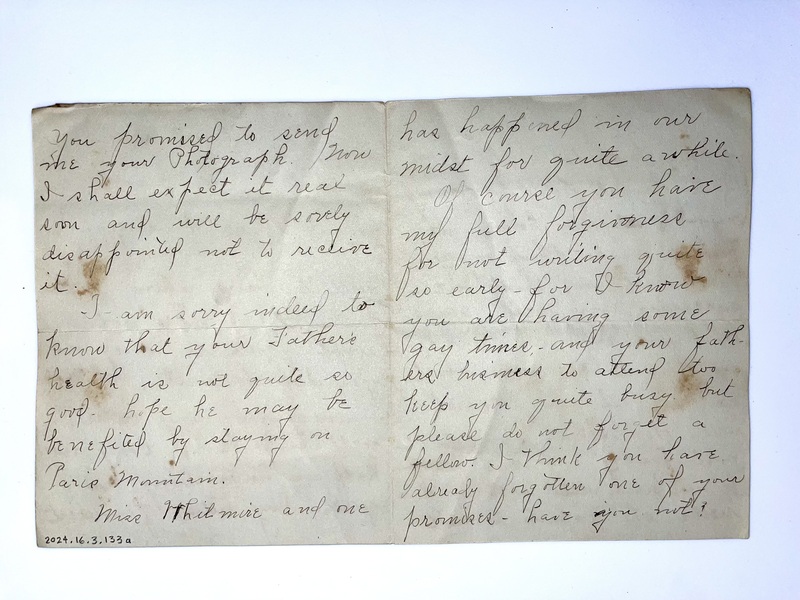 You promised to send
me your Photograph. Now
I shall expect it real
soon and will be sorely
disappointed not to receive
it.
-I am sorry indeed to
know that your Father's
health is not quite so
good - hope he may be
benefited by staying on
Paris Mountain.
Miss Whitmire and one
2024.16.3.133a
has happened in our
midst for quite awhile.
Of course you have
my full forgivness
for not writing quite
so early - for I know
you are having some
gay times, - and your fath-
ers business to attend too
keep you quite busy but
please do not forget a
fellow. I think you have
alrealy forgotten one of your
promises - have you not?